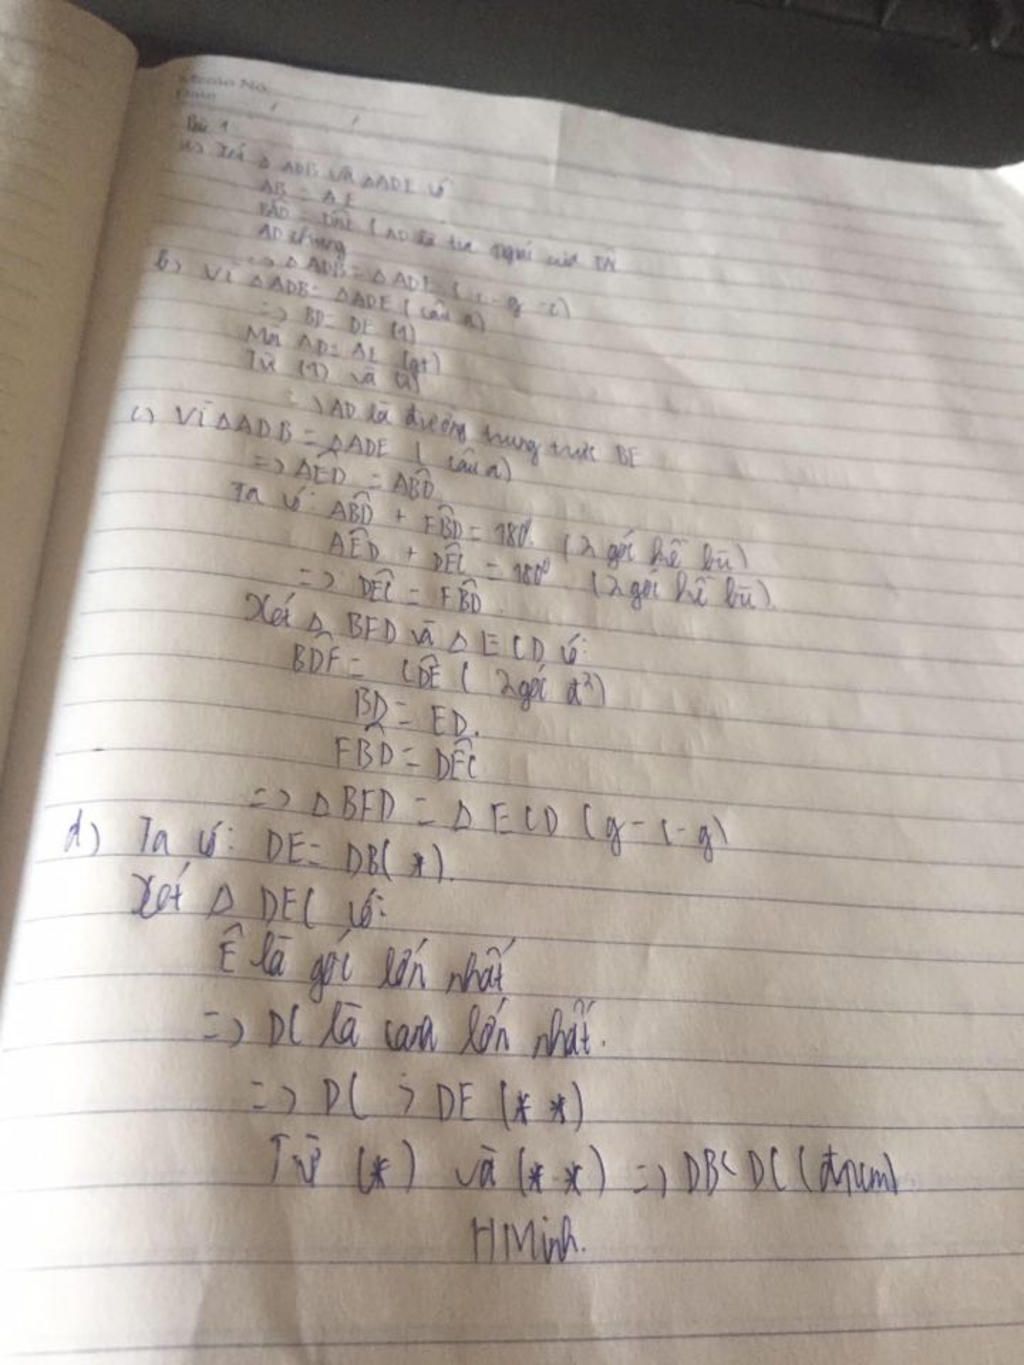 Bài 1
a) Xét Δ ADB và ΔADE có
AB = AE
AD chung
=> Δ ADB = Δ ADE (c-g-c)
b) Vì Δ ADB = ΔADE (câu a)
=> BD = DE (1)
Mà AD = AE (gt)
Từ (1) và (2)
=> AD là đường trung trực BE
c) Vì ΔADB = ΔADE (câu a)
=> AÊD = AB̂D
Ta có: AB̂D + FB̂D = 180°. (2 góc kề bù)
AÊD + DÊC = 180° (2 góc kề bù).
=> DÊC = FB̂D.
Xét Δ BFD và Δ ECD có:
BD̂F = CD̂E (2 góc đ²)
BD = ED.
FB̂D = DÊC
=> Δ BFD = Δ ECD (g-c-g)
d) Ta có: DE = DB (*).
Xét Δ DEC có:
Ê là góc lớn nhất
=> DC là cạnh lớn nhất.
=> DC > DE (* *)
Từ (*) và (* *) => DB < DC (đpcm)
HMinh.